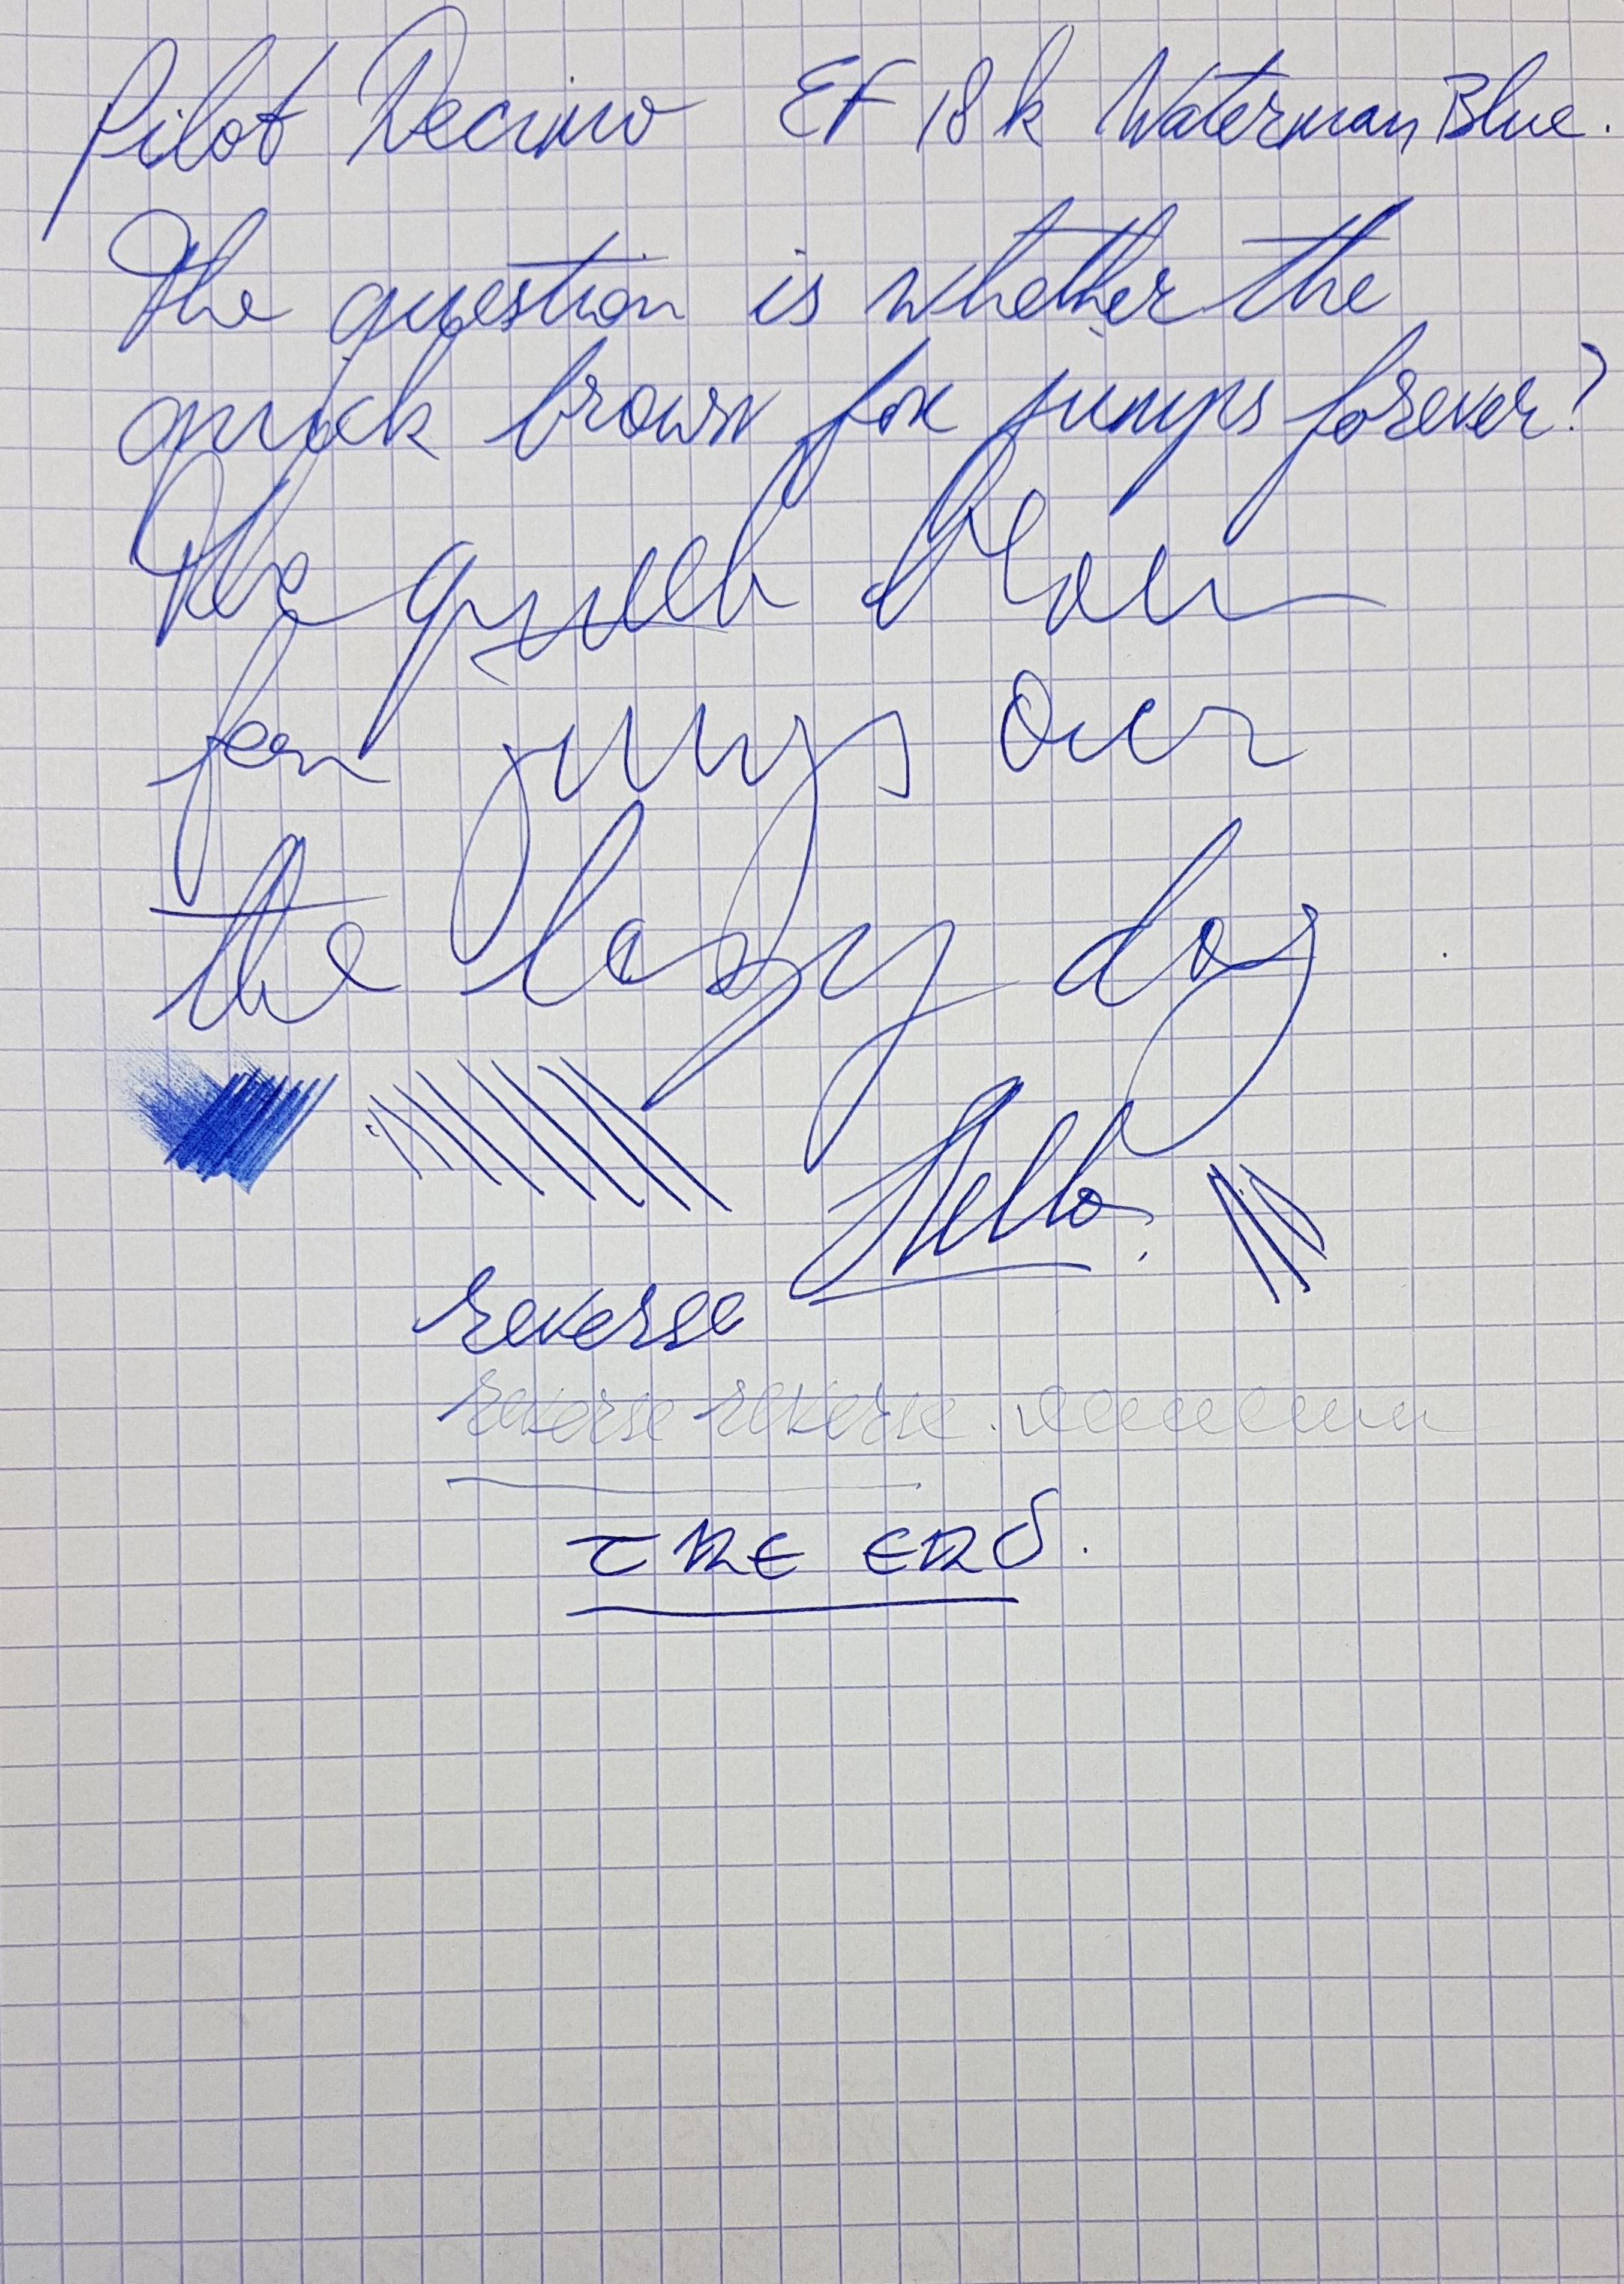 Pilot Decimo EF 18k Waterman Blue.
The question is whether the
quick brown fox jumps forever?
The quick brown
fox jumps over
the lazy dog
Hello!
reverse
reverse reverse.
THE END.